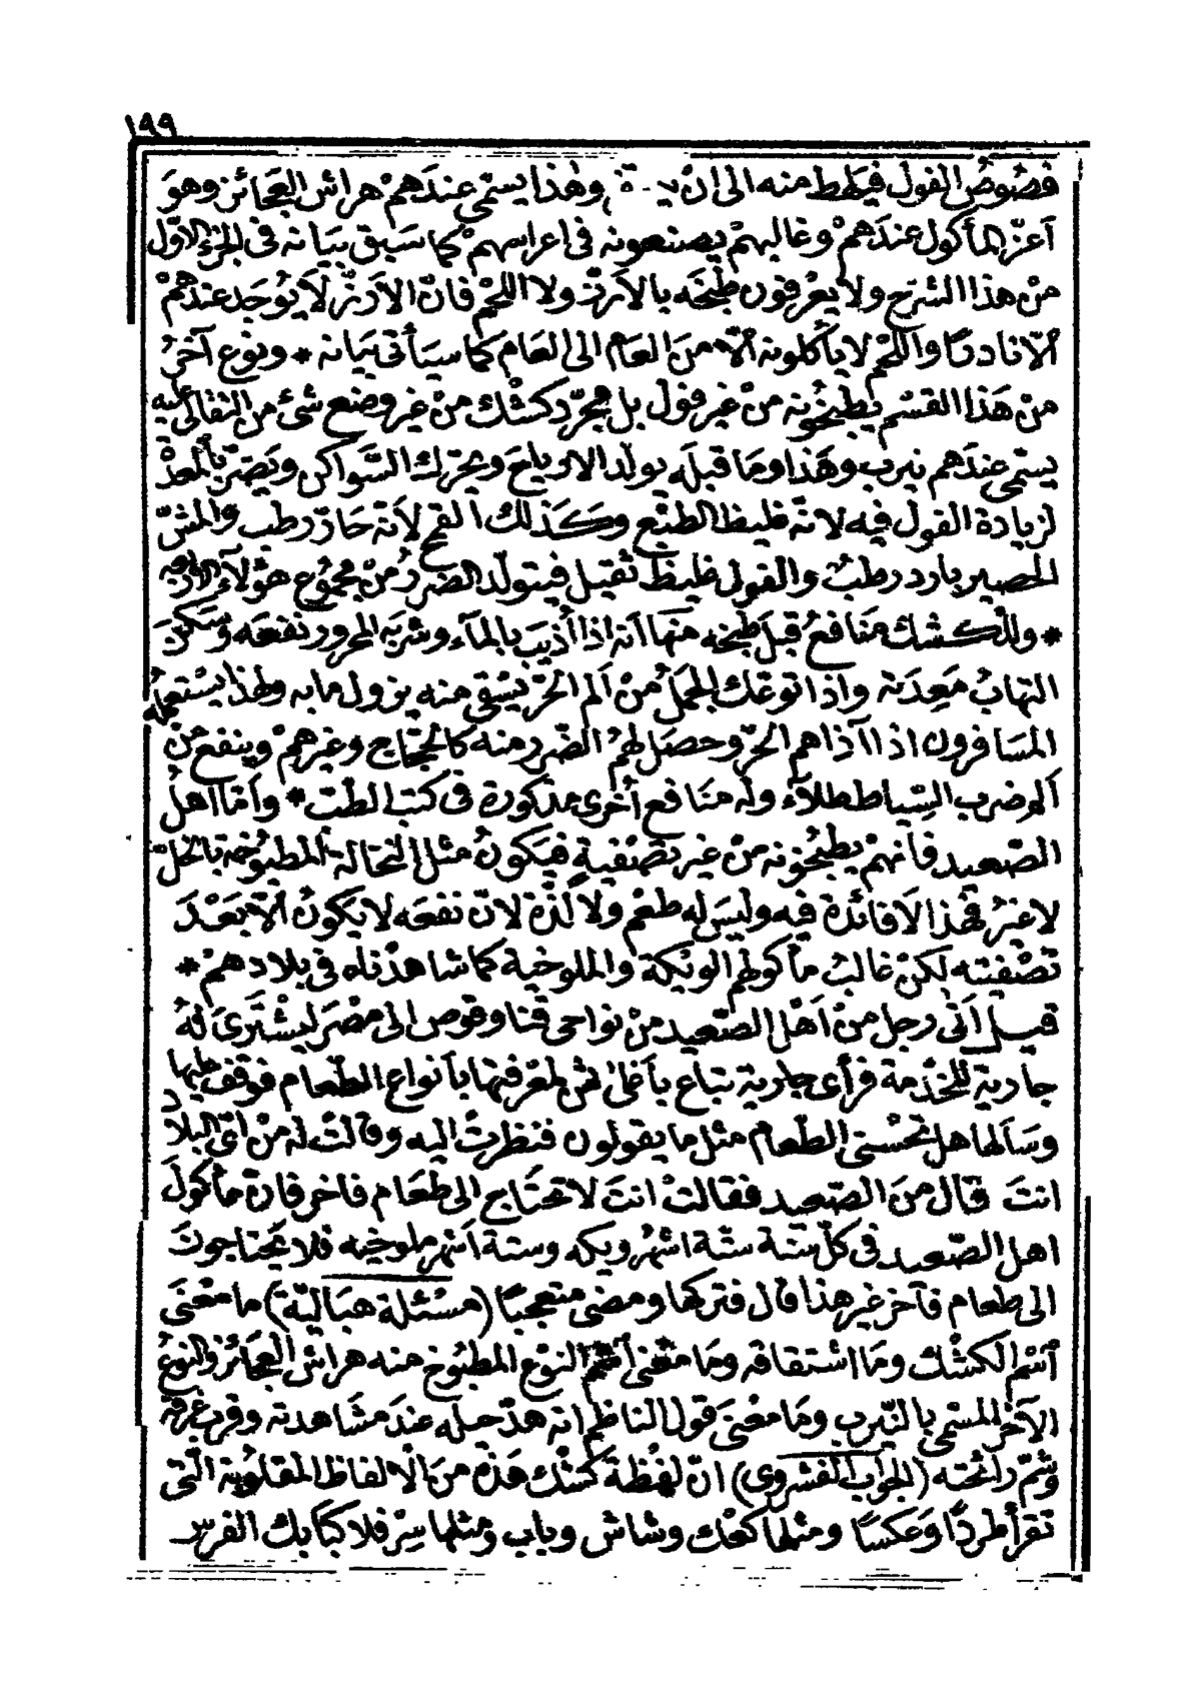 ١٩٩
فصُوصُ الفول فيخلط منه الى ان وهٰذا يسمّى عندَهمْ هرائس العجائز وهوَ
أعزّ المأكول عندَهمْ وغالبهمْ يصنعونه فى اعراسهمْ كما سَبق بيَانه فى الجزء الاوّل
منْ هذا الشرح ولا يعْرفون طبْخَه بالأرزّ ولا اللحْم فانّ الأرزّ لا يوُجَد عندهمْ
الّا نادرًا واللحْم لا يأكلونه الّا منَ العام الى العَام كما سيَأتى بيَانه * ونوْع آخرُ
منْ هَذا القسْم يطبخُونه منْ غير فول بل بمجرّد كشْك منْ غير وضع شئ من الثقالى عليه
يسمّى عندَهم نيرب وهَذا وما قبلَه يولّد الارياح ويحرّك السَّواكن ويَضرّ بالمعدْ
لزيادة الفول فيه لانّه غليظ الطبْع وكَذلك القمح لأنّه حَارّ رطب والمشّ
الحصير بارد رطبُ والفول غليظ ثقيل فيتولّد الضررُ منْ مجموُع هؤلآء الأربعه
* وللْكشك منَافعُ قبلَ طبخه منهَا انّه اذا أُذيبَ بالمآء وشربَه المحرور نفعَه وسَكنَ
التهابُ مَعِدَته واذا توعّك الجمَلُ منْ ألم الحرّ يُسْقى منه يزول ما به ولهذا يسْتعملُه
المسَافرون اذا آذاهم الحرّ وحصَل لهمُ الضّرر منه كالحجّاج وغيرهمْ وينفع منْ
ألم ضرب السِّياط طلاَء وله منَافع أُخرى مذكورة فى كتب الطبّ * وأمّا اهلُ
الصّعيد فانهمْ يطبخُونه منْ غير تصْفيةٍ فيكونُ مثل النخالة المطبوُخه بالخلّ
لا غيرُ فهذا لا فائدة فيه وليسَ له طعْم ولا لذّة لانّ نفعَه لا يكونُ الّا بَعْدَ
تصْفيته لكنْ غالبُ مأكولهم الويْكة والملوخية كما شاهدْناه فى بلادهمْ *
قيل أتى رجل منْ أهْل الصّعيد منْ نواحى قنا وقوص الى مصْرَ ليشْترىَ لهُ
جارية للخدْمة فرأى جارية تباع بأغلى ثمن لمعْرفتها بأنواع الطّعام فوقفَ عليها
وسَألها هل تحْسنى الطّعام مثل ما يقولون فنظرتْ اليه وقالتْ له منْ أىّ البلاد
انتَ قال منَ الصّعيد فقالتْ انتَ لا تحتَاج الى طعَام فاخر فانّ مأكولَ
اهل الصّعيد فى كلّ سَنة ستّة اشهُر ويكه وستة أشهر ملوخيه فلا يحتاجونَ
الى طعام فآخر غير هذا قال فتركها ومضى متعجبًا (مسْئلة هبَاليّة) ما معْنَى
اسْم الكشْك ومَا اشتقاقه ومَا معْنى اسْم النوْع المطبُوخ منه هرائس العجَائز والنوعُ
الآخر المسْمى بالنّيرب ومَا معْنَى قول الناظم انه هدّ حيله عندَ مشَاهدته وقرب غرفه
وشمّ رائحته (الجوَاب الفشروى) انّ لفْظة كشْك هَذه منَ الألفاظ المقلوُبة الّتى
تقرأ طردًا وَعكسًا ومثلها كعْك وشاش وباب ومثلها سِرْ فلا كبَا بك الفرس